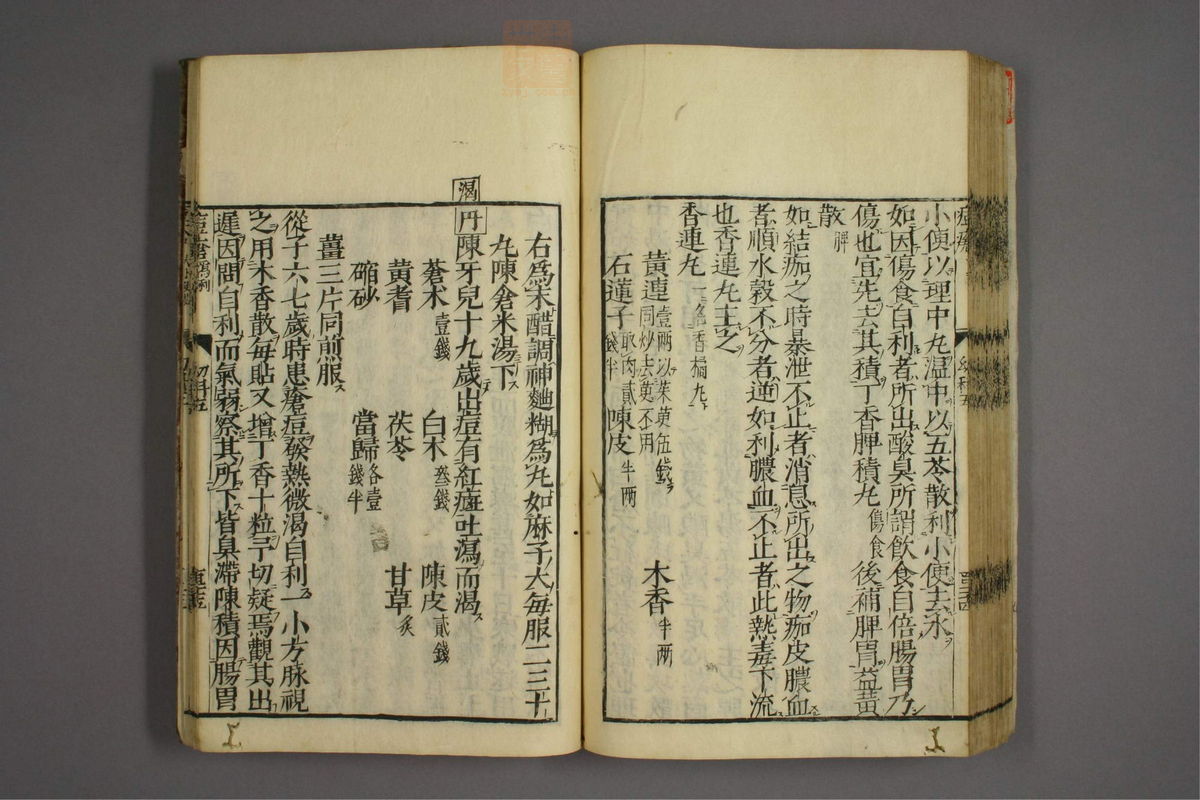 小便以理中丸温中以五苓散利小便去水
如因傷食自利者所出酸臭所謂飲食自倍腸胃乃
傷也宜先去其積丁香脾積丸傷食後補脾胃益黃
散脾
如結痂之時暴泄不止者消息所出之物痂皮膿血
者順水穀不分者逆如利膿血不止者此熱毒下流
也香連丸主之
香連丸一名香橘丸
黃連壹兩以茱萸伍錢同炒去萸不用 木香半兩
石蓮子取肉貳錢半 陳皮半兩
右爲末醋調神麯糊爲丸如麻子大每服二三十
丸陳倉米湯下
渴 丹陳牙兒十九歲出痘有紅癍吐瀉而渴
蒼朮壹錢 白朮叁錢 陳皮貳錢
黃耆 茯苓 甘草炙
縮砂 當歸各壹錢半
薑三片同煎服
從子六七歲時患瘡痘發熱微渴自利一小方脉視
之用木香散每貼又增丁香十粒予切疑焉觀其出
遲因問自利而氣弱察其所下皆臭滯陳積因腸胃